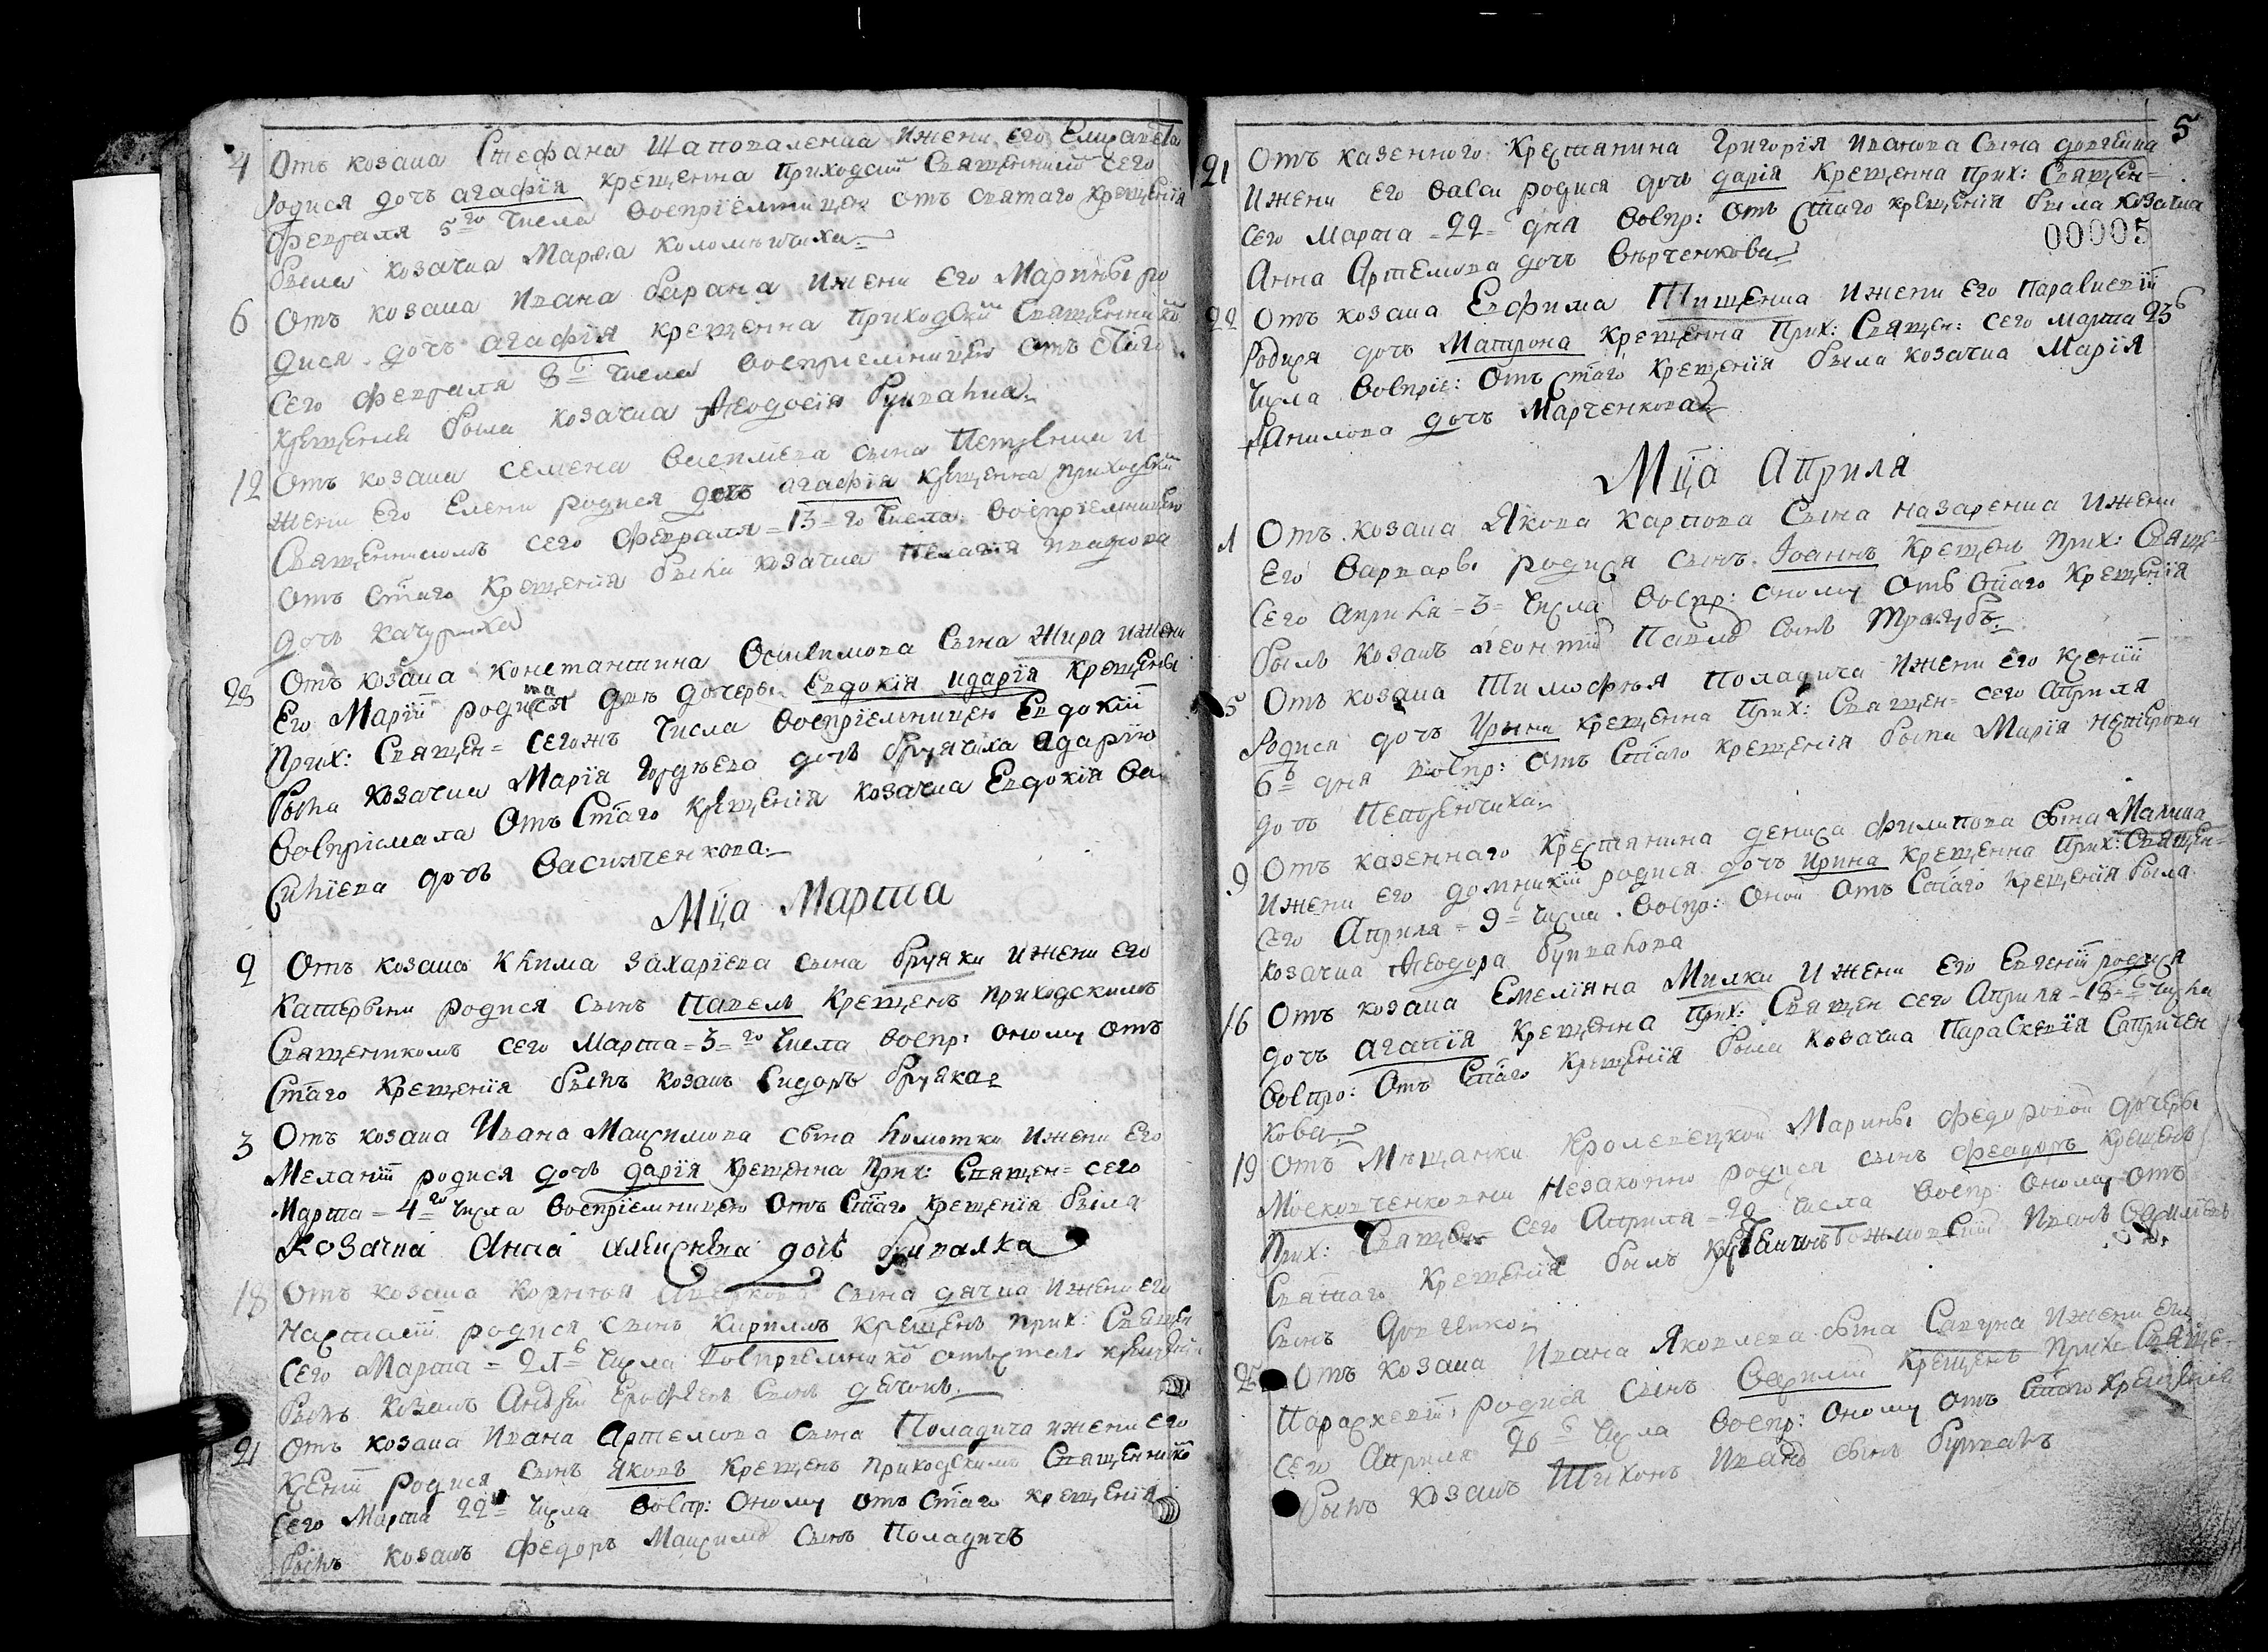 4 Отъ козака Стефана Шаповаленка и жены его Елисавета
родися дочъ агафїя крещенна приходским Священником сего
февраля 5го числа восприемницею отъ святаго крещенїя
была козачка Марѳа Коломыичиха
6 Отъ козака Ивана барана и жены его Марины ро
дися дочъ агафїя крещенна приходским Священнико
сего февраля 8 числа восприемницею отъ стаго
крещенїя была козачка Феодосїя
12 Отъ козака семена василиева сына Петренка и
жены его Елены родися дочъ агафїя крещенна приходским
Священникомъ сего февраля 13 го числа восприемницею
отъ стаго крещенїя была козачка Пелагїя
дочъ качуриха
23 Отъ козака константина сына Жира и жены
его Марїи родися две дочеры Евдокїя и дарїя крещены
прих: Священ= сегожъ числа восприемницею Евдокїи
была козачка Марїя гордѣева дочъ а дарїю
воспрїимала отъ стаго крещенїя козачка Евдокїя ва
силїева дочъ Василченкова
Мца Марта
2 Отъ козака Клима захарїева сына бруяки и жены его
катерины родися сынъ Павелъ крещенъ приходскимъ
Священикомъ сего Марта 3 го числа воспр: оному отъ
стаго крещенїя былъ козакъ Сидоръ бруяка
3 Отъ козака Ивана Максимова сына ломотки и жены его
Меланїи родися дочъ дарїя крещенна прих: Священ= сего
Марта 4 го числа восприемницею отъ стаго крещенїя была
козачка Анна дочъ
18 Отъ козака Корнѣя сына дячка и жены его
Настасїи родися сынъ кирилъ крещенъ прих: Священ
сего Марта числа восприемнико отъ стаго крещенїя
былъ козакъ Андрей Ерофѣевъ сынъ дячокъ
21 Отъ козака Ивана Артемова сына Поладича и жены его
ксенїи родися сынъ Яковъ крещенъ приходскимъ Священнико
сего Марта 22 числа воспр: оному отъ стаго крещенїя
былъ козакъ федоръ Максимо сынъ Поладичъ
5
00005
21 Отъ казенного крестянина Григорїя иванова сына довгенка
и жены его васы родися дочъ дарїя крещенна прих: Священ=
сего Марта 22 дня воспр: отъ стаго крещенїя была козачка
Анна Артемова дочъ Вѣрченкова
22 Отъ козака Евфима Тищенка и жены его параскевїи
родися дочъ Матрона крещенна прих: Священ: сего марта 23
числа воспрїе: отъ стаго крещенїя была козачка Марїя
данилова дочъ Марченкова
Мца Априля
1 Отъ козака Якова карпова сына назаренка и жены
его варвары родися сынъ Іоаннъ крещенъ прих: Свяще
сего априля 3 числа воспр: оному отъ стаго крещенїя
былъ козакъ леонтий Павло сынъ
5 Отъ козака Тимофѣя Поладича и жены его ксенїи
родися дочъ Ирина крещенна прих: Священ= сего априля
6 дня воспр: отъ стаго крещенїя была Марїя петрова
дочъ Петренчиха
9 Отъ казеннаго крестянина дениса филипова сына Махина
и жены его домникїи родися дочъ ирина крещенна прих: Священ=
сего Априля 9 числа воспр: оной отъ стаго крещенїя была
козачка Феодора
16 Отъ козака Емелїяна Милки и жены его Евгенїи родися
дочъ агапїя крещенна прих: Священ сего Априля 18 числа
воспр: отъ стаго крещенїя была козачка параскевїя Сапричен
кова
19 Отъ Мѣщанки Кролевецкой Марины федоровой дочеры
Москонченковны незаконно родися сынъ феодоръ крещенъ
прих: Священ сего Априля 20 числа воспр оному отъ
святаго крещенїя былъ Иванъ
сынъ довгенко
25 Отъ козака Ивана Яковлева сына Сапуна и жены его
параскевїи родися сынъ Василїй крещенъ прихо Священ
сего Априля 26 числа воспр: оному отъ стаго крещенїя
былъ козакъ Тихонъ Ивано сынъ